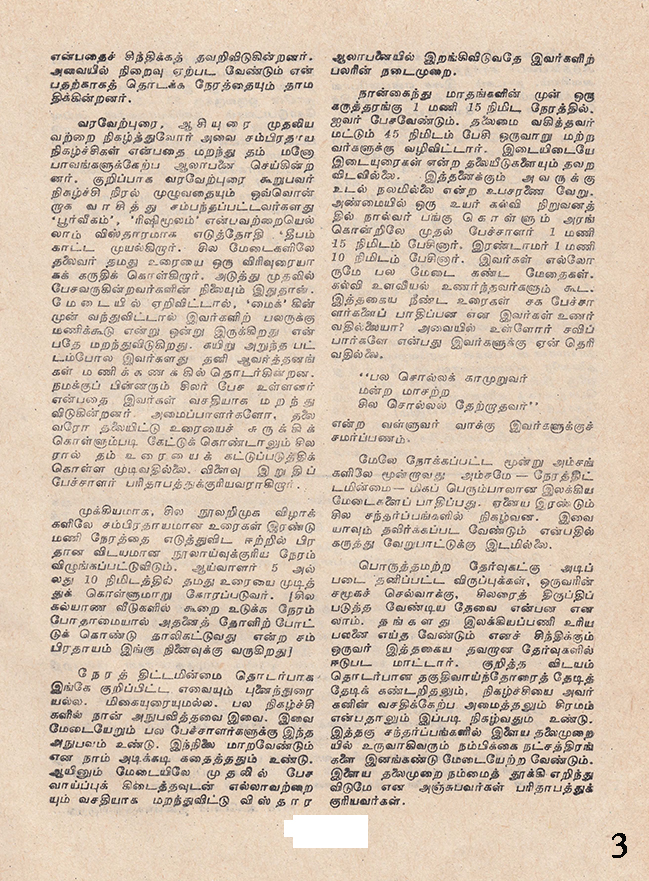 என்பதைச் சிந்திக்கத் தவறிவிடுகின்றனர்.
அவையில் நிறைவு ஏற்பட வேண்டும் என்
பதற்காகத் தொடக்க நேரத்தையும் தாம
திக்கின்றனர்.
வரவேற்புரை, ஆசியுரை முதலிய
வற்றை நிகழ்த்துவோர் அவை சம்பிரதாய
நிகழ்ச்சிகள் என்பதை மறந்து தம் மனோ
பாவங்களுக்கேற்ப ஆலாபனை செய்கின்ற
னர். குறிப்பாக வரவேற்புரை கூறுபவர்
நிகழ்ச்சி நிரல் முழுவதையும் ஒவ்வொன்
றாக வாசித்து சம்பந்தப்பட்டவர்களது
'பூர்வீகம்', 'ரிஷிமூலம்' என்பவற்றையெல்
லாம் விஸ்தாரமாக எடுத்தோதி 'தீபம்
காட்ட முயல்கிறார். சில மேடைகளிலே
தலைவர் தமது உரையை ஒரு விரிவுரையா
கக் கருதிக் கொள்கிறார். அடுத்து முதலில்
பேசவருகின்றவர்களின் நிலையும் இதுதான்.
மேடையில் ஏறிவிட்டால், 'மைக்' கின்
முன் வந்துவிட்டால் இவர்களிற் பலருக்கு
மணிக்கூடு என்று ஒன்று இருக்கிறது என்
பதே மறந்துவிடுகிறது. கயிறு அறுந்த பட்
டம்போல இவர்களது தனி ஆவர்த்தனங்
கள் மணிக்கணக்கில் தொடர்கின்றன.
நமக்குப் பின்னரும் சிலர் பேச உள்ளனர்
என்பதை இவர்கள் வசதியாக மறந்து
விடுகின்றனர். அமைப்பாளர்களோ, தலை
வரோ தலையிட்டு உரையைச் சுருக்கிக்
கொள்ளும்படி கேட்டுக் கொண்டாலும் சில
ரால் தம் உரையைக் கட்டுப்படுத்திக்
கொள்ள முடிவதில்லை. விளைவு இறுதிப்
பேச்சாளர் பரிதாபத்துக்குரியவராகிறார்.
முக்கியமாக, சில நூலறிமுக விழாக்
களிலே சம்பிரதாயமான உரைகள் இரண்டு
மணி நேரத்தை எடுத்துவிட ஈற்றில் பிர
தான விடயமான நூலாய்வுக்குரிய நேரம்
விழுங்கப்பட்டுவிடும். ஆய்வாளர் 5 அல்
லது 10 நிமிடத்தில் தமது உரையை முடித்
துக் கொள்ளுமாறு கோரப்படுவர். [சில
கல்யாண வீடுகளில் கூறை உடுக்க நேரம்
போதாமையால் அதனைத் தோளிற் போட்
டுக் கொண்டு தாலிகட்டுவது என்ற சம்
பிரதாயம் இங்கு நினைவுக்கு வருகிறது]
நேரத் திட்டமின்மை தொடர்பாக
இங்கே குறிப்பிட்ட எவையும் புனைந்துரை
யல்ல. மிகையுரையுமல்ல. பல நிகழ்ச்சி
களில் நான் அநுபவித்தவை இவை. இவை
மேடையேறும் பல பேச்சாளர்களுக்கு இந்த
அநுபவம் உண்டு. இந்நிலை மாறவேண்டும்
என நாம் அடிக்கடி கதைத்ததும் உண்டு.
ஆயினும் மேடையிலே முதலில் பேச
வாய்ப்புக் கிடைத்தவுடன் எல்லாவற்றை
யும் வசதியாக மறந்துவிட்டு விஸ்தார
ஆலாபனையில் இறங்கிவிடுவதே இவர்களிற்
பலரின் நடைமுறை.
நான்கைந்து மாதங்களின் முன் ஒரு
கருத்தரங்கு 1 மணி 15 நிமிட நேரத்தில்.
ஐவர் பேசவேண்டும். தலைமை வகித்தவர்
மட்டும் 45 நிமிடம் பேசி ஒருவாறு மற்ற
வர்களுக்கு வழிவிட்டார். இடையிடையே
இடையுரைகள் என்ற தலையீடுகளையும் தவற
விடவில்லை. இத்தனைக்கும் அவருக்கு
உடல் நலமில்லை என்ற உபசரணை வேறு.
அண்மையில் ஒரு உயர் கல்வி நிறுவனத்
தில் நால்வர் பங்கு கொள்ளும் அரங்
கொன்றிலே முதல் பேச்சாளர் 1 மணி
15 நிமிடம் பேசினார். இரண்டாமவர் 1 மணி
10 நிமிடம் பேசினார். இவர்கள் எல்லோ
ருமே பல மேடை கண்ட மேதைகள்.
கல்வி உளவியல் உணர்ந்தவர்களும் கூட.
இத்தகைய நீண்ட உரைகள் சக பேச்சா
ளர்களைப் பாதிப்பன என இவர்கள் உணர்
வதில்லையா? அவையில் உள்ளோர் சலிப்
பார்களே என்பது இவர்களுக்கு ஏன் தெரி
வதில்லை.
"பல சொல்லக் காமுறுவர்
மன்ற மாசற்ற
சில சொல்லல் தேற்றாதவர்"
என்ற வள்ளுவர் வாக்கு இவர்களுக்குச்
சமர்ப்பணம்.
மேலே நோக்கப்பட்ட மூன்று அம்சங்
களிலே மூன்றாவது அம்சமே — நேரத்திட்
டமின்மை — மிகப் பெரும்பாலான இலக்கிய
மேடைகளைப் பாதிப்பது. ஏனைய இரண்டும்
சில சந்தர்ப்பங்களில் நிகழ்வன. இவை
யாவும் தவிர்க்கப்பட வேண்டும் என்பதில்
கருத்து வேறுபாட்டுக்கு இடமில்லை.
பொருத்தமற்ற தேர்வுகட்கு அடிப்
படை தனிப்பட்ட விருப்புக்கள், ஒருவரின்
சமூகச் செல்வாக்கு, சிலரைத் திருப்திப்
படுத்த வேண்டிய தேவை என்பன என
லாம். தங்களது இலக்கியப்பணி உரிய
பலனை எய்த வேண்டும் எனச் சிந்திக்கும்
ஒருவர் இத்தகைய தவறான தேர்வுகளில்
ஈடுபட மாட்டார். குறித்த விடயம்
தொடர்பான தகுதிவாய்ந்தோரைத் தேடித்
தேடிக் கண்டறிதலும், நிகழ்ச்சியை அவர்
களின் வசதிக்கேற்ப அமைத்தலும் சிரமம்
என்பதாலும் இப்படி நிகழ்வதும் உண்டு.
இத்தகு சந்தர்ப்பங்களில் இளைய தலைமுறை
யில் உருவாகிவரும் நம்பிக்கை நட்சத்திரங்
களை இனங்கண்டு மேடையேற்ற வேண்டும்.
இளைய தலைமுறை நம்மைத் தூக்கி எறிந்து
விடுமே என அஞ்சுபவர்கள் பரிதாபத்துக்
குரியவர்கள்.
3